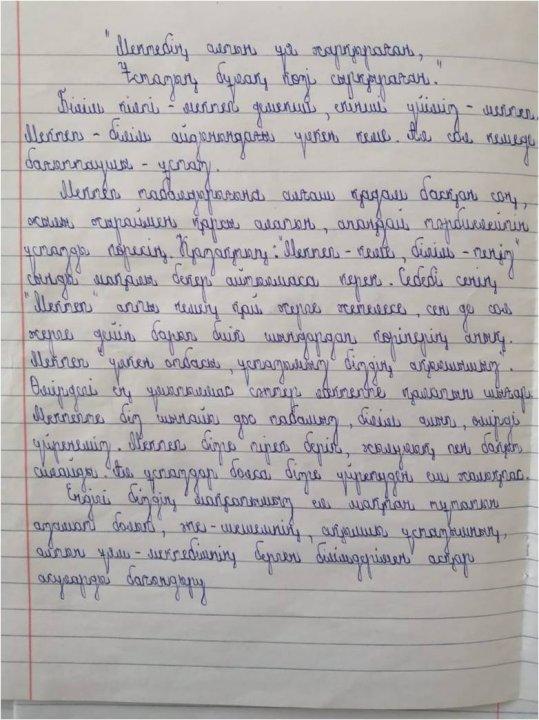 "Мектебің алтын ұя жарқыраған,
Ұстазың бұлақ көзі сылдыраған."
Білім кілті - мектеп демекші, екінші үйіміз - мектеп.
Мектеп - білім айдынындағы үлкен кеме. Ал сол кемеде
бағыттаушы - ұстаз.
Мектеп табалдырығына алғаш қадам басқан соң,
жылы жыраймен қарсы алатын, анаңдай тәрбиелейтін
ұстазды көресің. Қазақтың: "Мектеп - кеме, білім - теңіз"
сынды мақалы бекер айтылмаса керек. Себебі сенің
"Мектеп" атты кемең қай жерге жетелесе, сен де сол
жерге дейін барып биік шыңдардан көрінерің анық.
Мектеп "үлкен отбасы, ұстазымыз біздің ақылшымыз".
Өмірдегі ең ұмытылмас сәттер мектепте қалатын шығар.
Мектепте біз шынайы дос табамыз, білім алып, өмірді
үйренеміз. Мектеп бізге тірек беріп, жылулық пен бақыт
сыйлайды. Ал ұстаздар болса бізге үйретуден еш жалықпас.
Ендігі біздің мақсатымыз ел мақтан тұтатын
азамат болып, әке-шешемнің, ақылшы ұстазымның,
алтын ұям-мектебімнің берген білімдерімен асқар
асуларды бағындыру